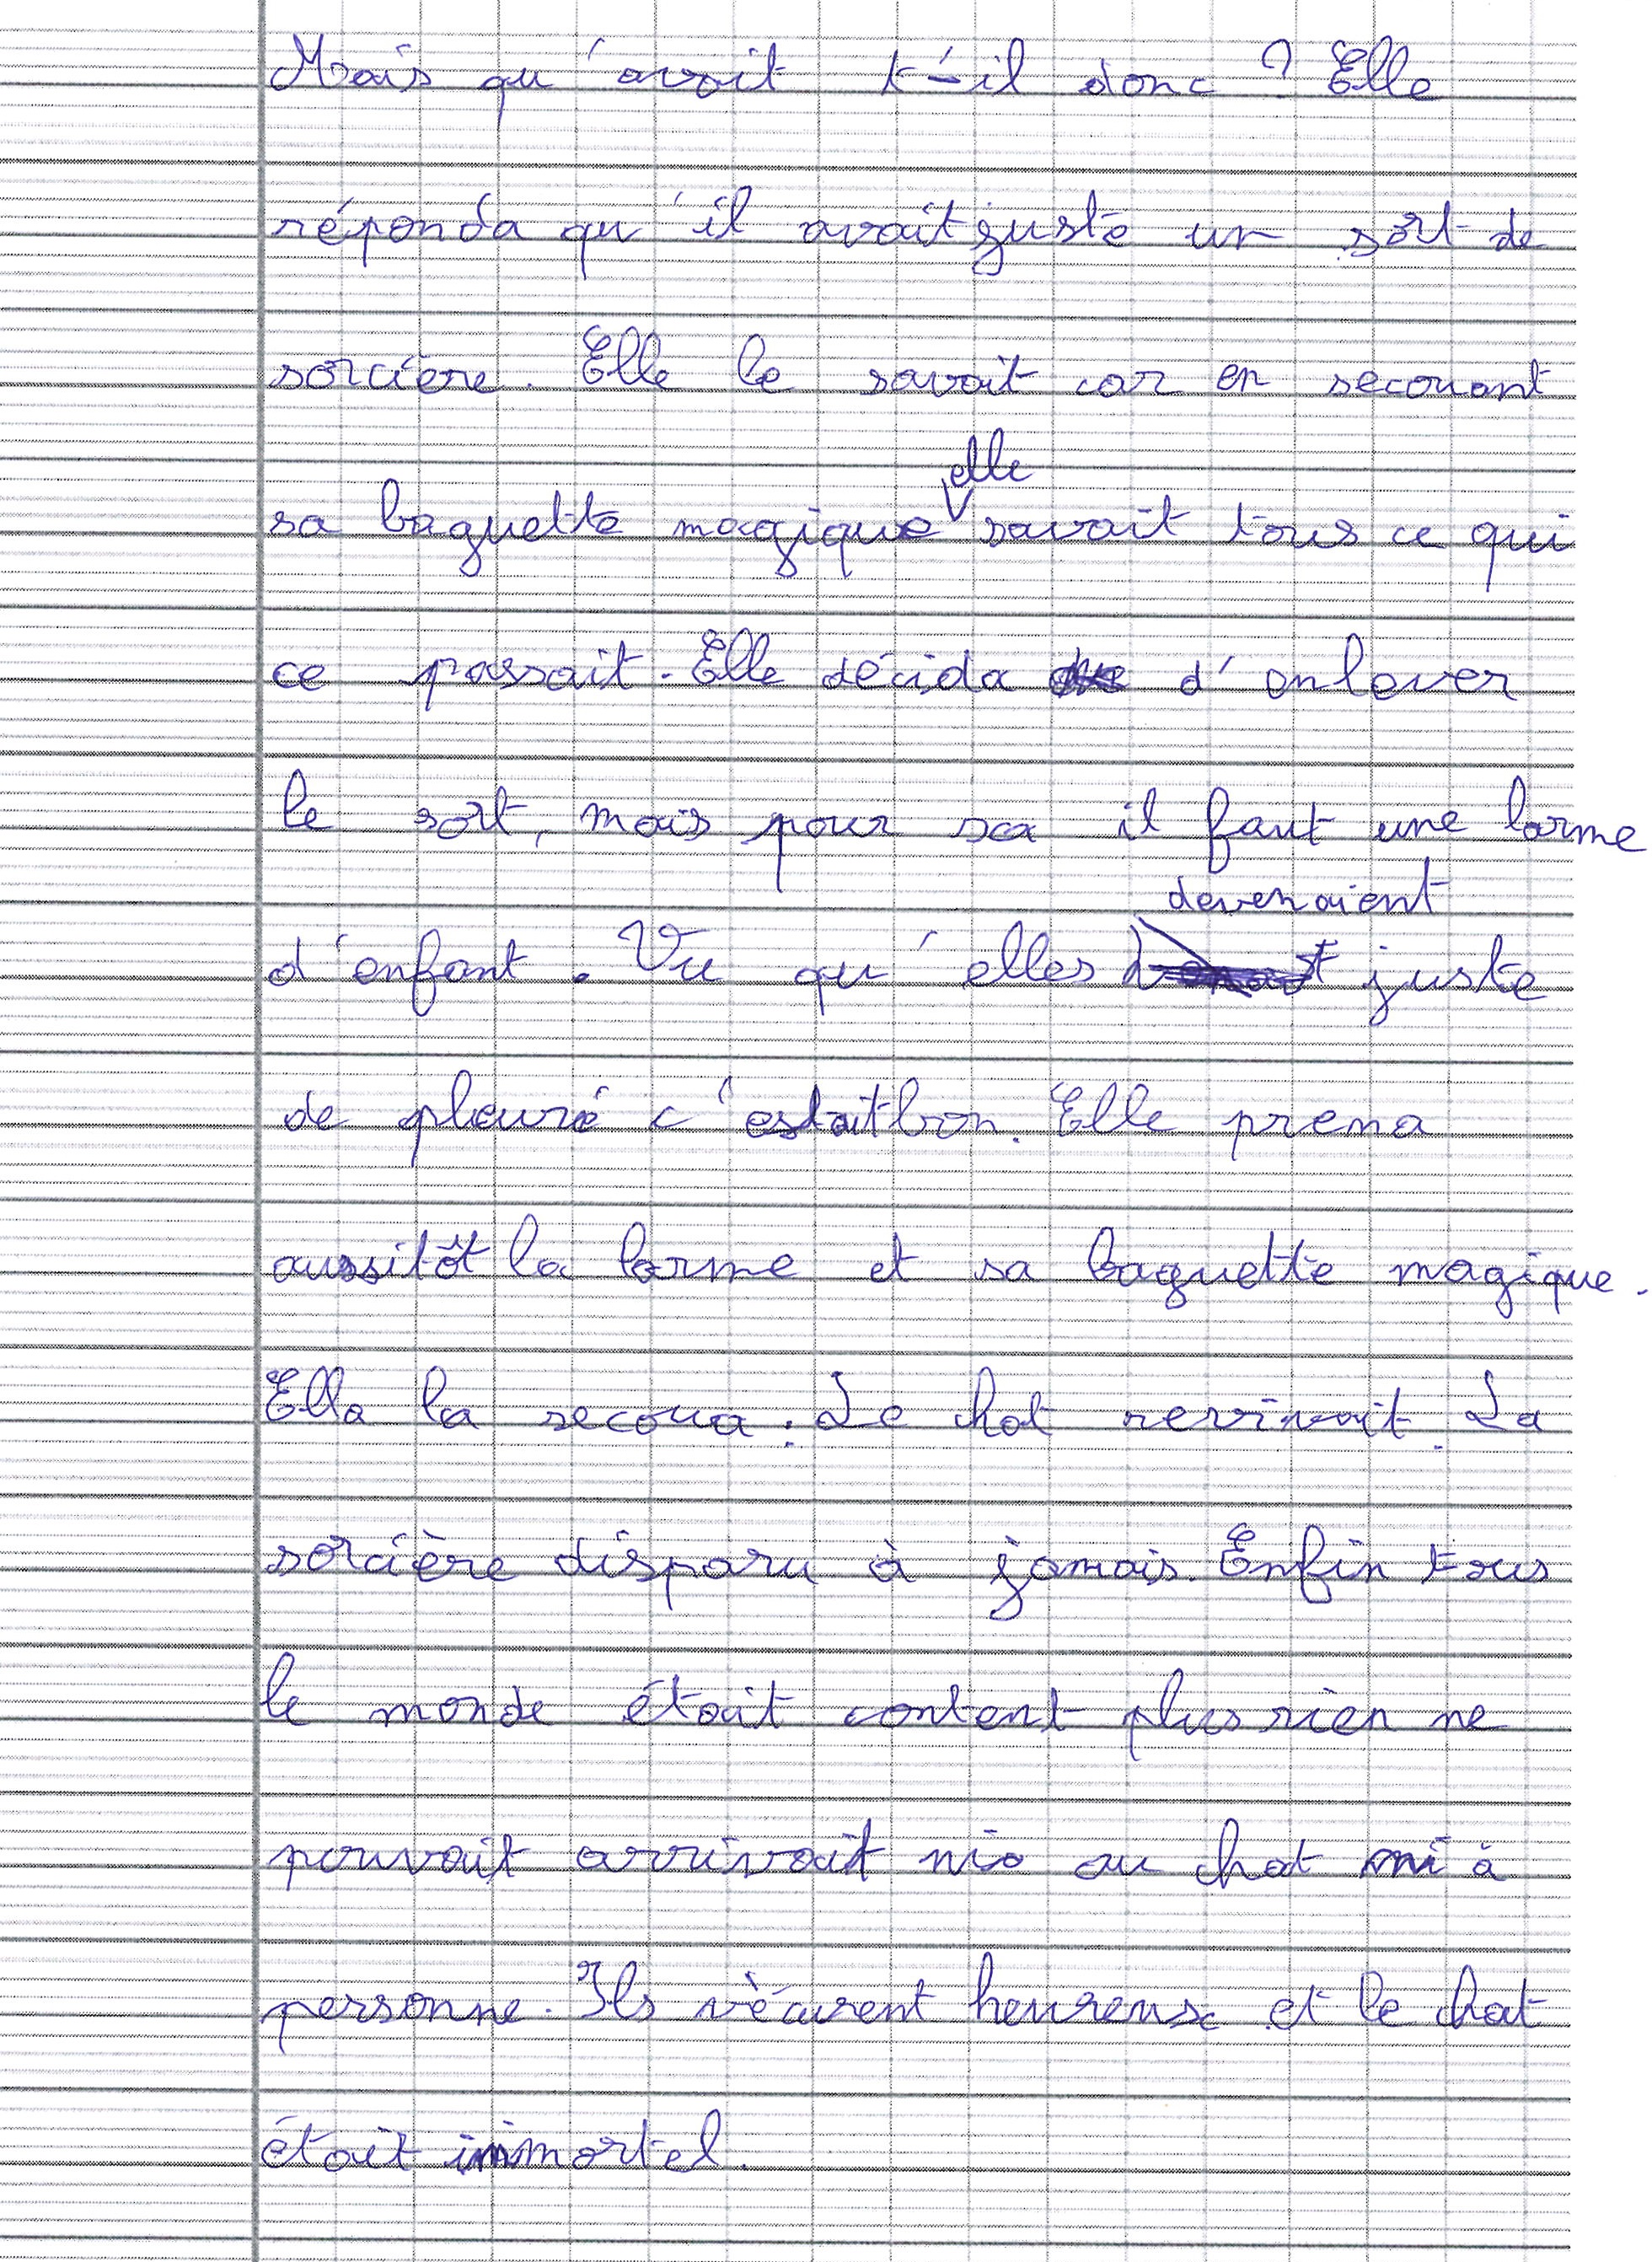 Mais qu'avait t-il donc ? Elle
réponda qu'il avait juste un sort de
sorcière. Elle le savait car en secouant
elle
sa baguette magique savait tous ce qui
ce passait. Elle décida d'enlever
le sort, mais pour sa il faut une larme
devenaient
d'enfant. Vu qu'elles juste
de pleuré c'estait bon. Elle prena
aussitôt la larme et sa baguette magique.
Elle la secoua : Le chat revivait. La
sorcière disparu à jamais. Enfin tous
le monde était content plus rien ne
pouvait arrivait ni au chat ni à
personne. Ils vécurent heureux et le chat
était immortel.